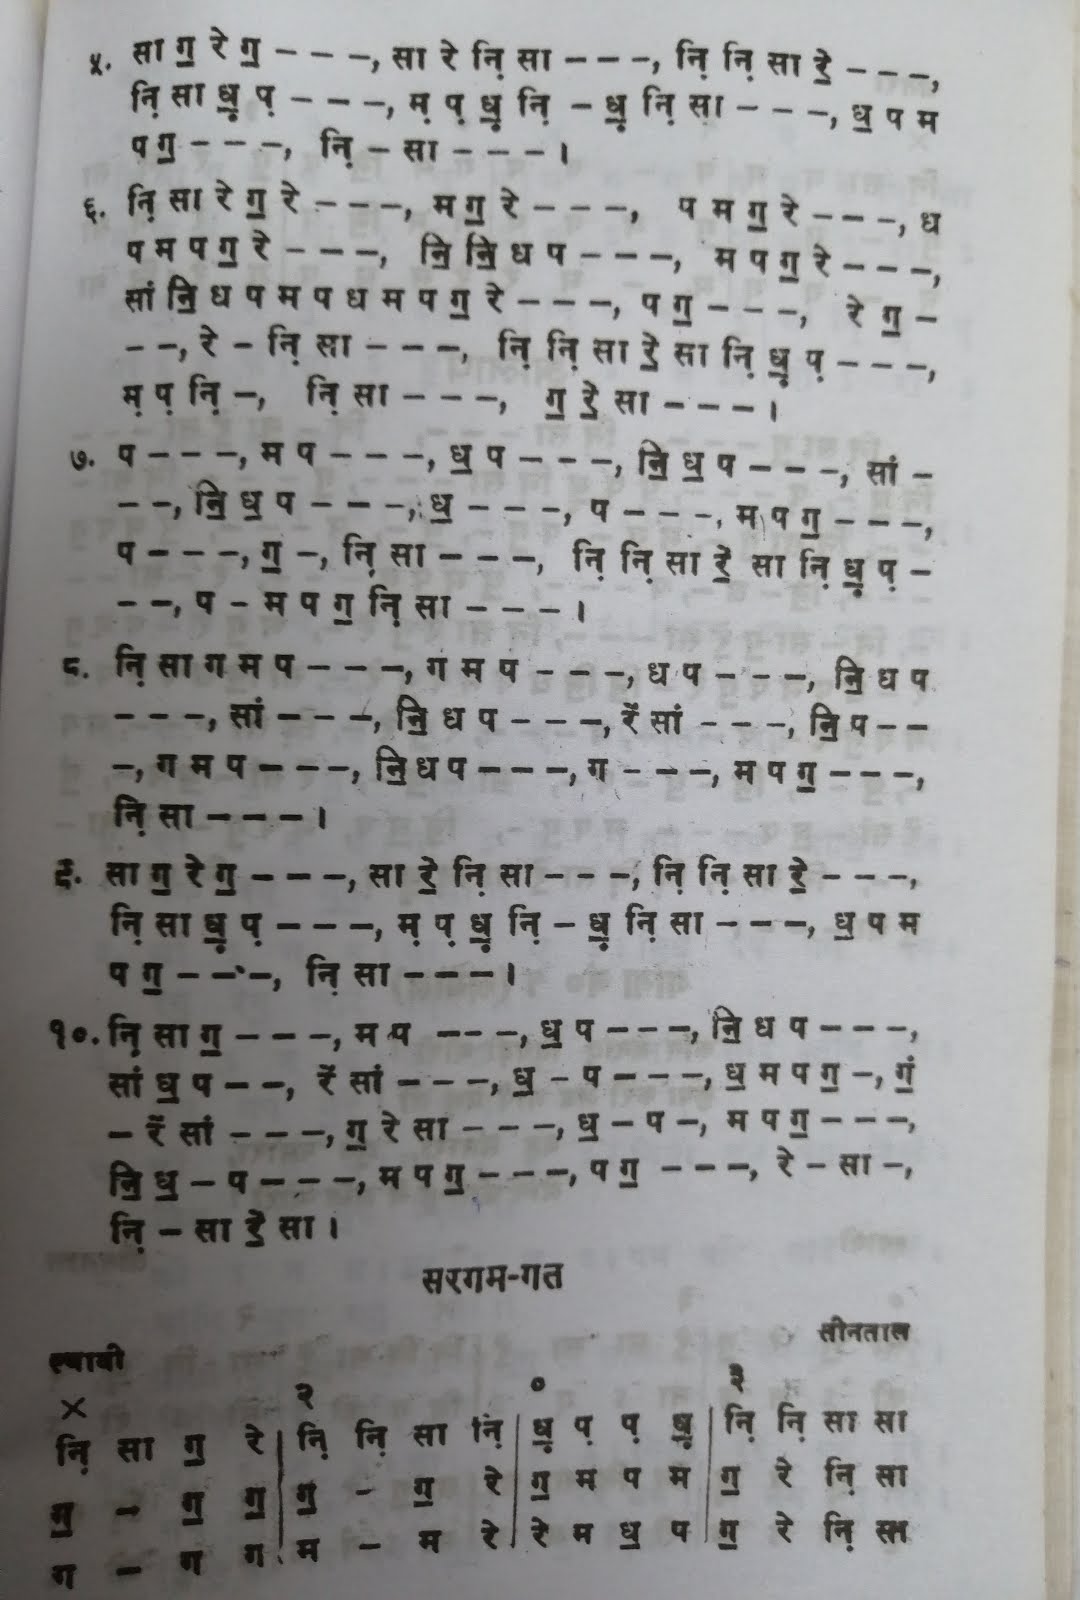 ५. सा ग॒ रे ग॒ – – –, सा रे नि़ सा – – –, नि़ नि़ सा रे॒ – – –,
नि़ सा ध़॒ प़ – – –, म़ प़ ध़॒ नि़ – ध़॒ नि़ सा – – –, ध॒ प म
प ग॒ – – –, नि़ – सा – – – ।
६. नि़ सा रे ग॒ रे – – –, म ग॒ रे – – –, प म ग॒ रे – – –, ध
प म प ग॒ रे – – –, नि॒ नि॒ ध प – – –, म प ग॒ रे – – –,
सां नि॒ ध प म प ध म प ग॒ रे – – –, प ग॒ – – –, रे ग॒ –
– –, रे – नि़ सा – – –, नि़ नि़ सा रे॒ सा नि़ ध़॒ प़ – – –,
म़ प़ नि़ –, नि़ सा – – –, ग॒ रे॒ सा – – – ।
७. प – – –, म प – – –, ध॒ प – – –, नि॒ ध॒ प – – –, सां –
– –, नि॒ ध॒ प – – –, ध॒ – – –, प – – –, म प ग॒ – – –,
प – – –, ग॒ –, नि़ सा – – –, नि़ नि़ सा रे॒ सा नि़ ध़॒ प़ –
– –, प – म प ग॒ नि़ सा – – – ।
८. नि़ सा ग म प – – –, ग म प – – –, ध प – – –, नि॒ ध प
– – –, सां – – –, नि॒ ध प – – –, रें सां – – –, नि॒ प – –
–, ग म प – – –, नि॒ ध प – – –, ग – – –, म प ग॒ – – –,
नि़ सा – – – ।
९. सा ग॒ रे ग॒ – – –, सा रे॒ नि़ सा – – –, नि़ नि़ सा रे॒ – – –,
नि़ सा ध़॒ प़ – – –, म़ प़ ध़॒ नि़ – ध़॒ नि़ सा – – –, ध॒ प म
प ग॒ – – –, नि़ सा – – – ।
१०. नि़ सा ग॒ – – –, म प – – –, ध॒ प – – –, नि॒ ध प – – –,
सां ध॒ प – –, रें सां – – –, ध॒ – प – – –, ध॒ म प ग॒ –, गं॒
– रें सां – – –, ग॒ रे सा – – –, ध॒ – प –, म प ग॒ – – –,
नि॒ ध॒ – प – – –, म प ग॒ – – –, प ग॒ – – –, रे – सा –,
नि़ – सा रे॒ सा ।
सरगम-गत
तीनताल
स्थायी
× २ ० ३
नि़ सा ग॒ रे | नि़ नि़ सा नि़ | ध़॒ प़ प़ ध़॒ | नि़ नि़ सा सा
ग॒ – ग॒ ग॒ | ग॒ – ग॒ रे | ग॒ म प म | ग॒ रे नि़ सा
ग – ग ग | म – म रे | रे म ध॒ प | ग॒ रे नि़ सा